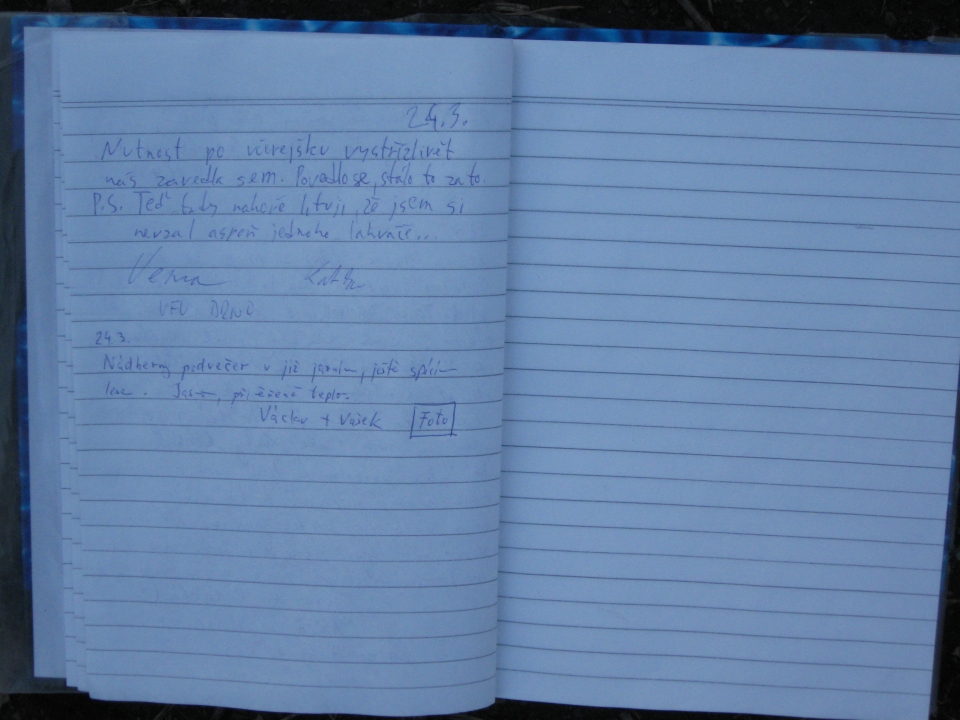 24.3.
Nutnost po včerejšku vystřízlivět
nás zavedla sem. Povedlo se, stálo to za to.
P.S. Teď tady nahoře lituji, že jsem si
nevzal aspoň jednoho lahváče...
VFU BRNO
24.3.
Nádherný podvečer v již jarním, ještě spícím
lese. Jasno, příjemně teplo.
Václav + Vašek Foto